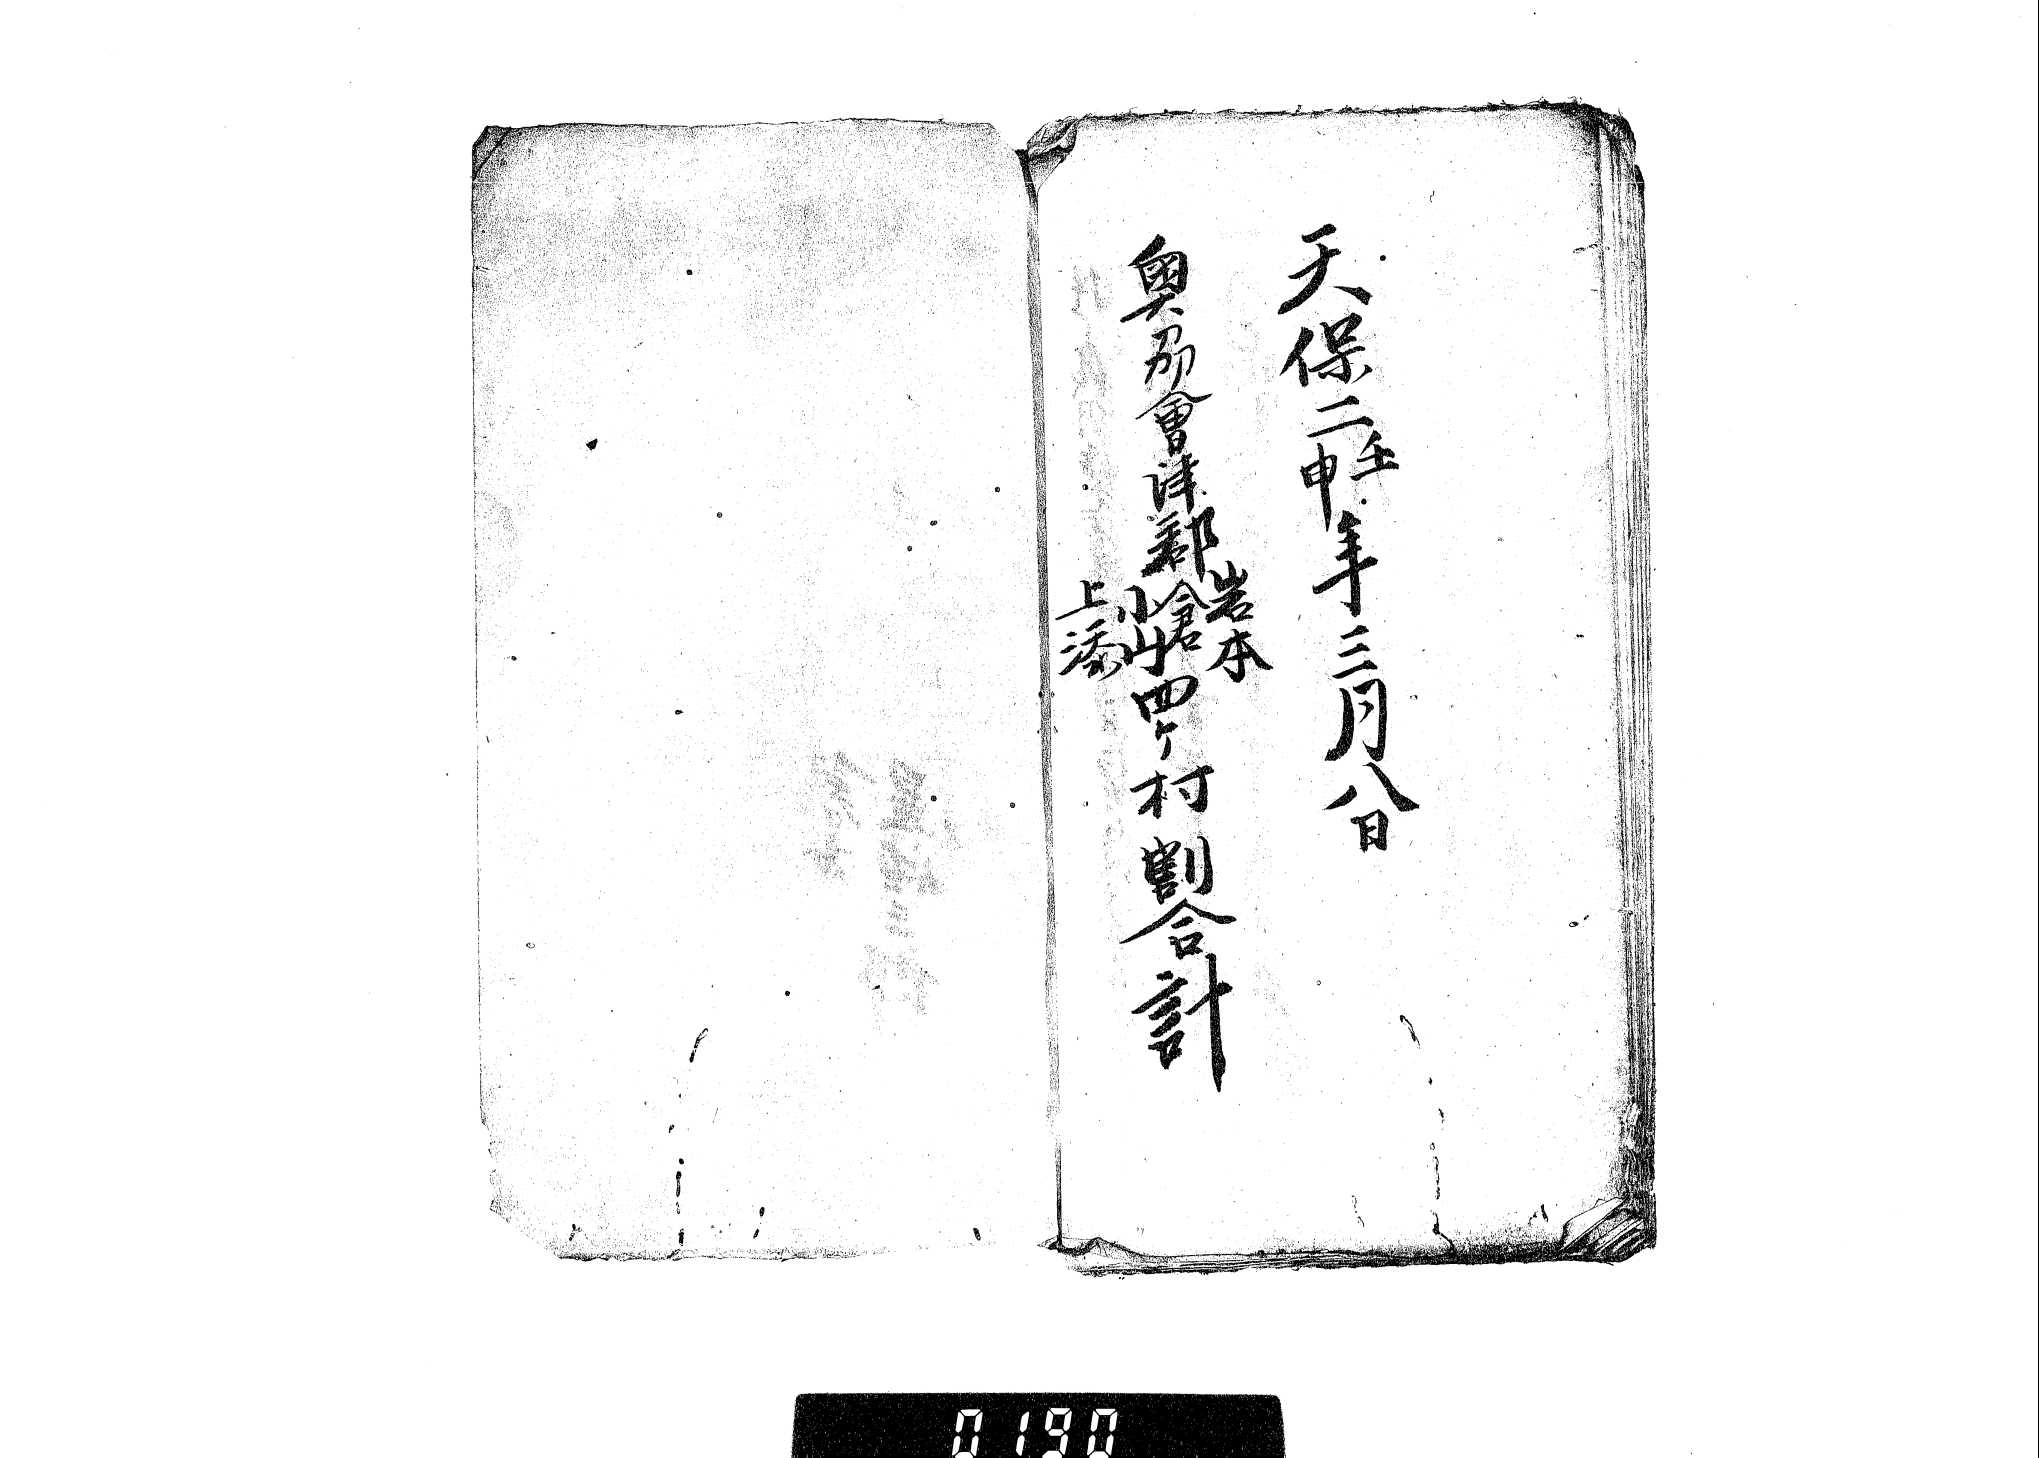 天保二壬申年三月八日
奥刕會津郡
岩本
小山
上
四ヶ村割合計
0190